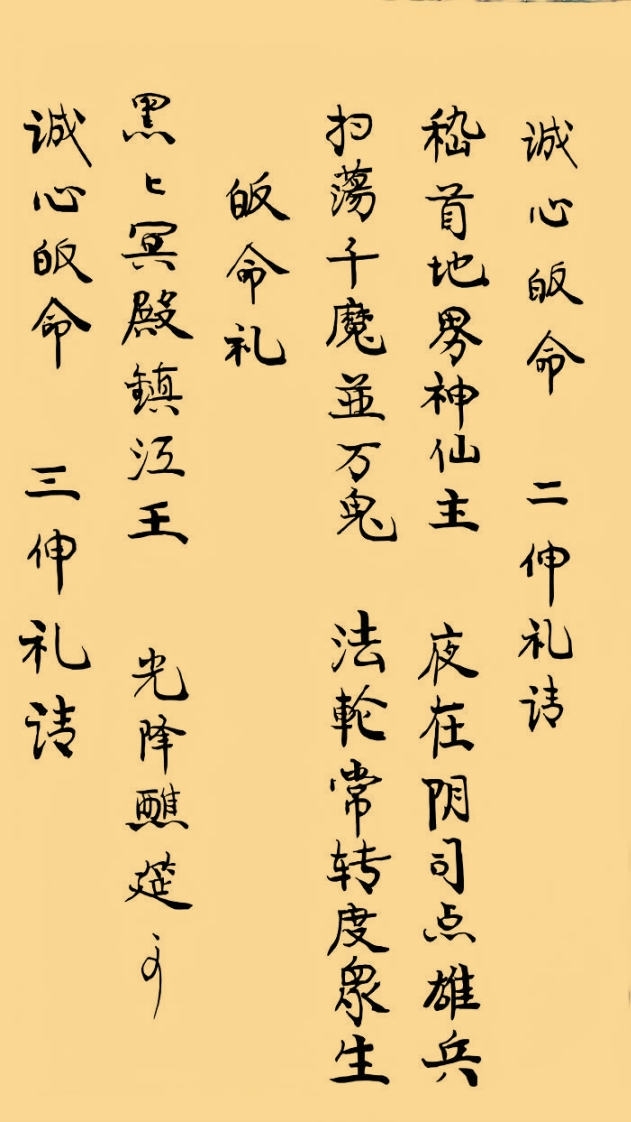 诚心皈命 二伸礼请
嵇首地界神仙主 夜在阴司点雄兵
扫荡千魔並万鬼 法轮常转度众生
皈命礼
黑匕冥殿鎮江王 光降醮筵
诚心皈命 三伸礼请